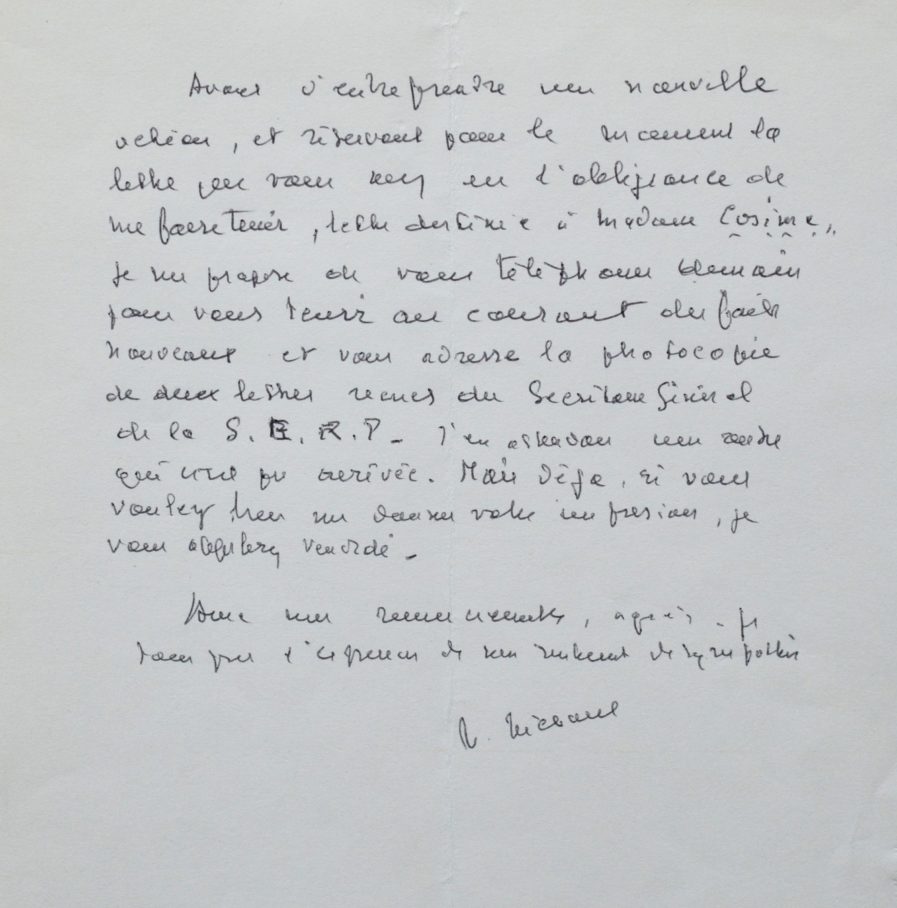 Avant d'entreprendre une nouvelle
action, et réservant pour le moment la
lettre que vous avez eu l'obligeance de
me faire tenir, lettre destinée à Madame Cosima,
je me propose de vous téléphoner demain
pour vous tenir au courant des faits
nouveaux et vous adresse la photocopie
de deux lettres reçues du Secrétaire Général
de la S.E.R.P. J'en
qui arrivée. Mais déjà, si vous
voulez bien me donner votre impression, je
vous
Avec mes remerciements, agréez, je
vous prie l'expression de mes sentiments de sympathie